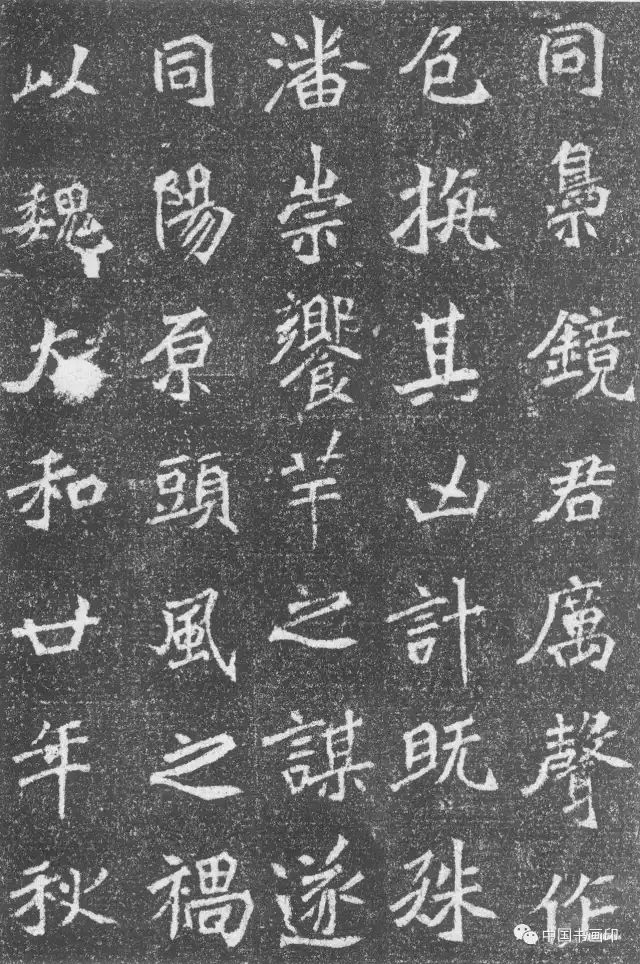 同梟鏡君厲聲作
色執其凶計既殊
潘崇饗羊之謀遂
同陽原頭風之禍
以魏太和廿年秋
中国书画印